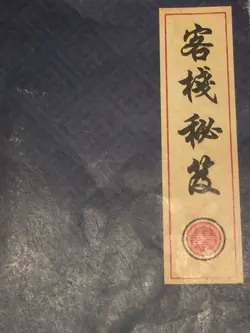 客栈秘笈